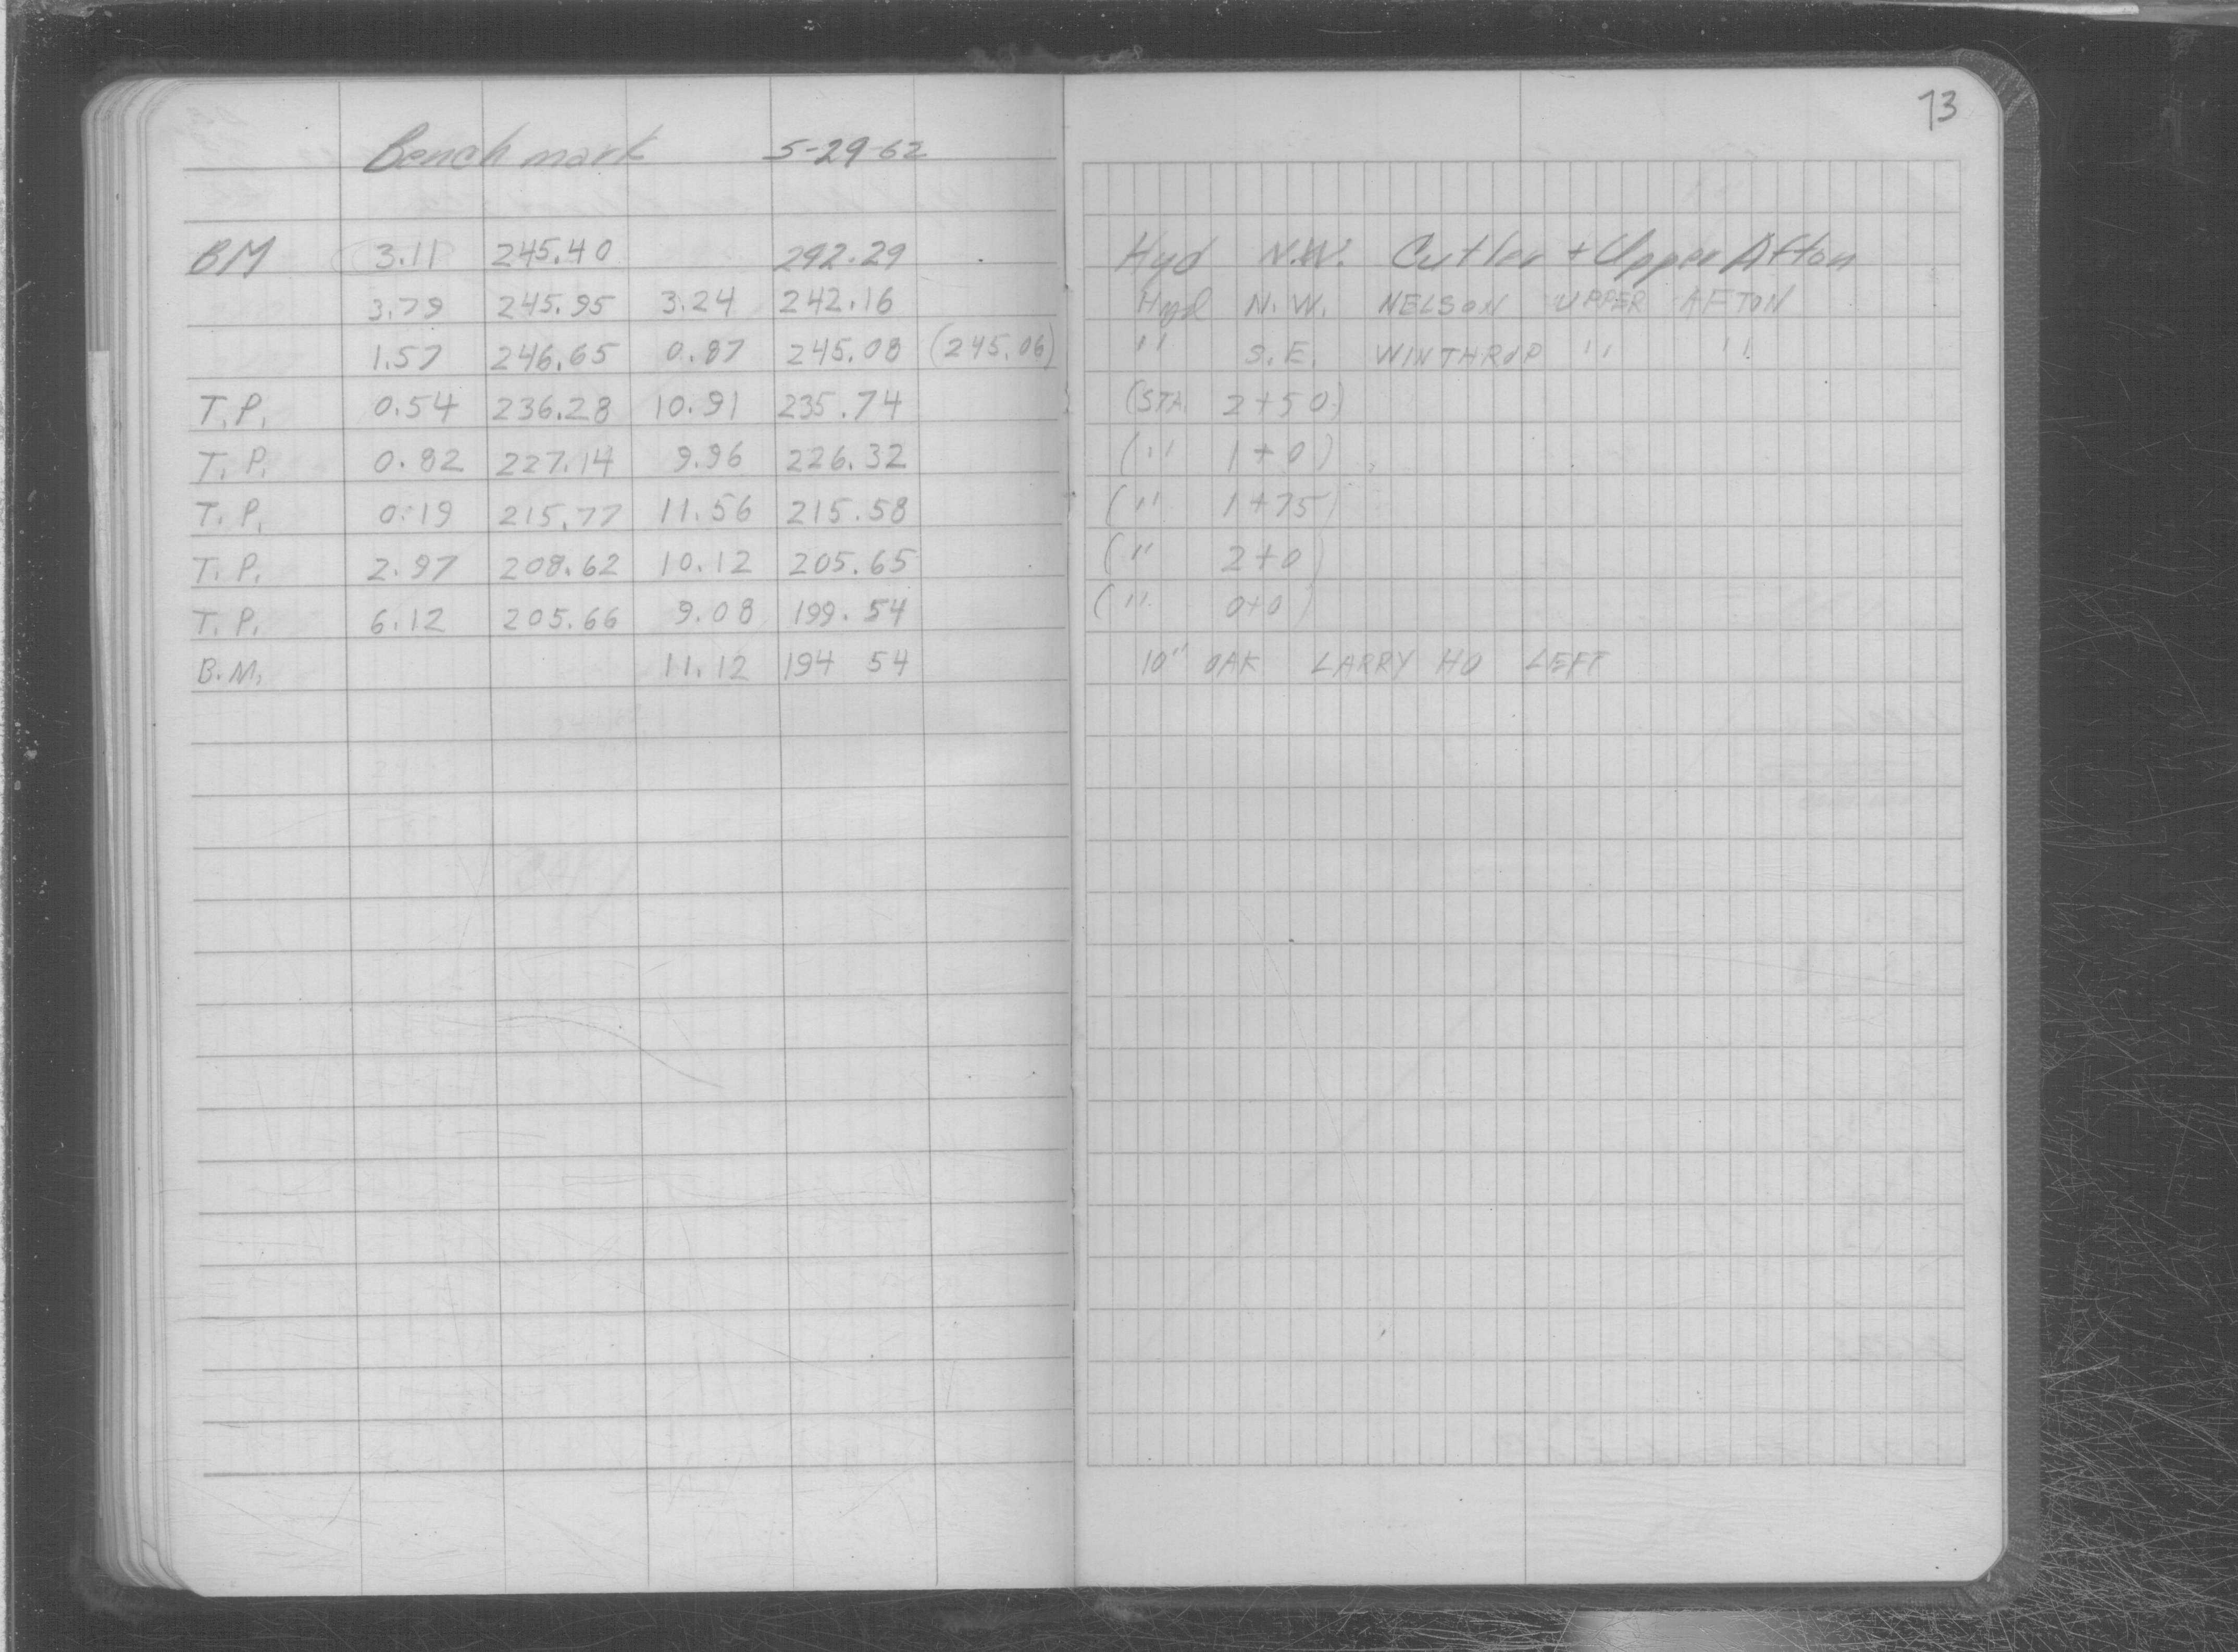 73
Bench mark 5-29-62
BM 3.11 245.40 292.29 Hyd N.W. Cutler + Upper Afton
3.79 245.95 3.24 242.16 Hyd N.W. NELSON UPPER AFTON
1.57 246.65 0.87 245.08 (245.06) " S.E. WINTHROP " "
T.P. 0.54 236.28 10.91 235.74 (STA 2+50)
T.P. 0.82 227.14 9.96 226.32 (" 1+0)
T.P. 0.19 215.77 11.56 215.58 (" 1+75)
T.P. 2.97 208.62 10.12 205.65 (" 2+0)
T.P. 6.12 205.66 9.08 199.54 (" 0+0)
B.M. 11.12 194 54 10" OAK LARRY HO LEFT